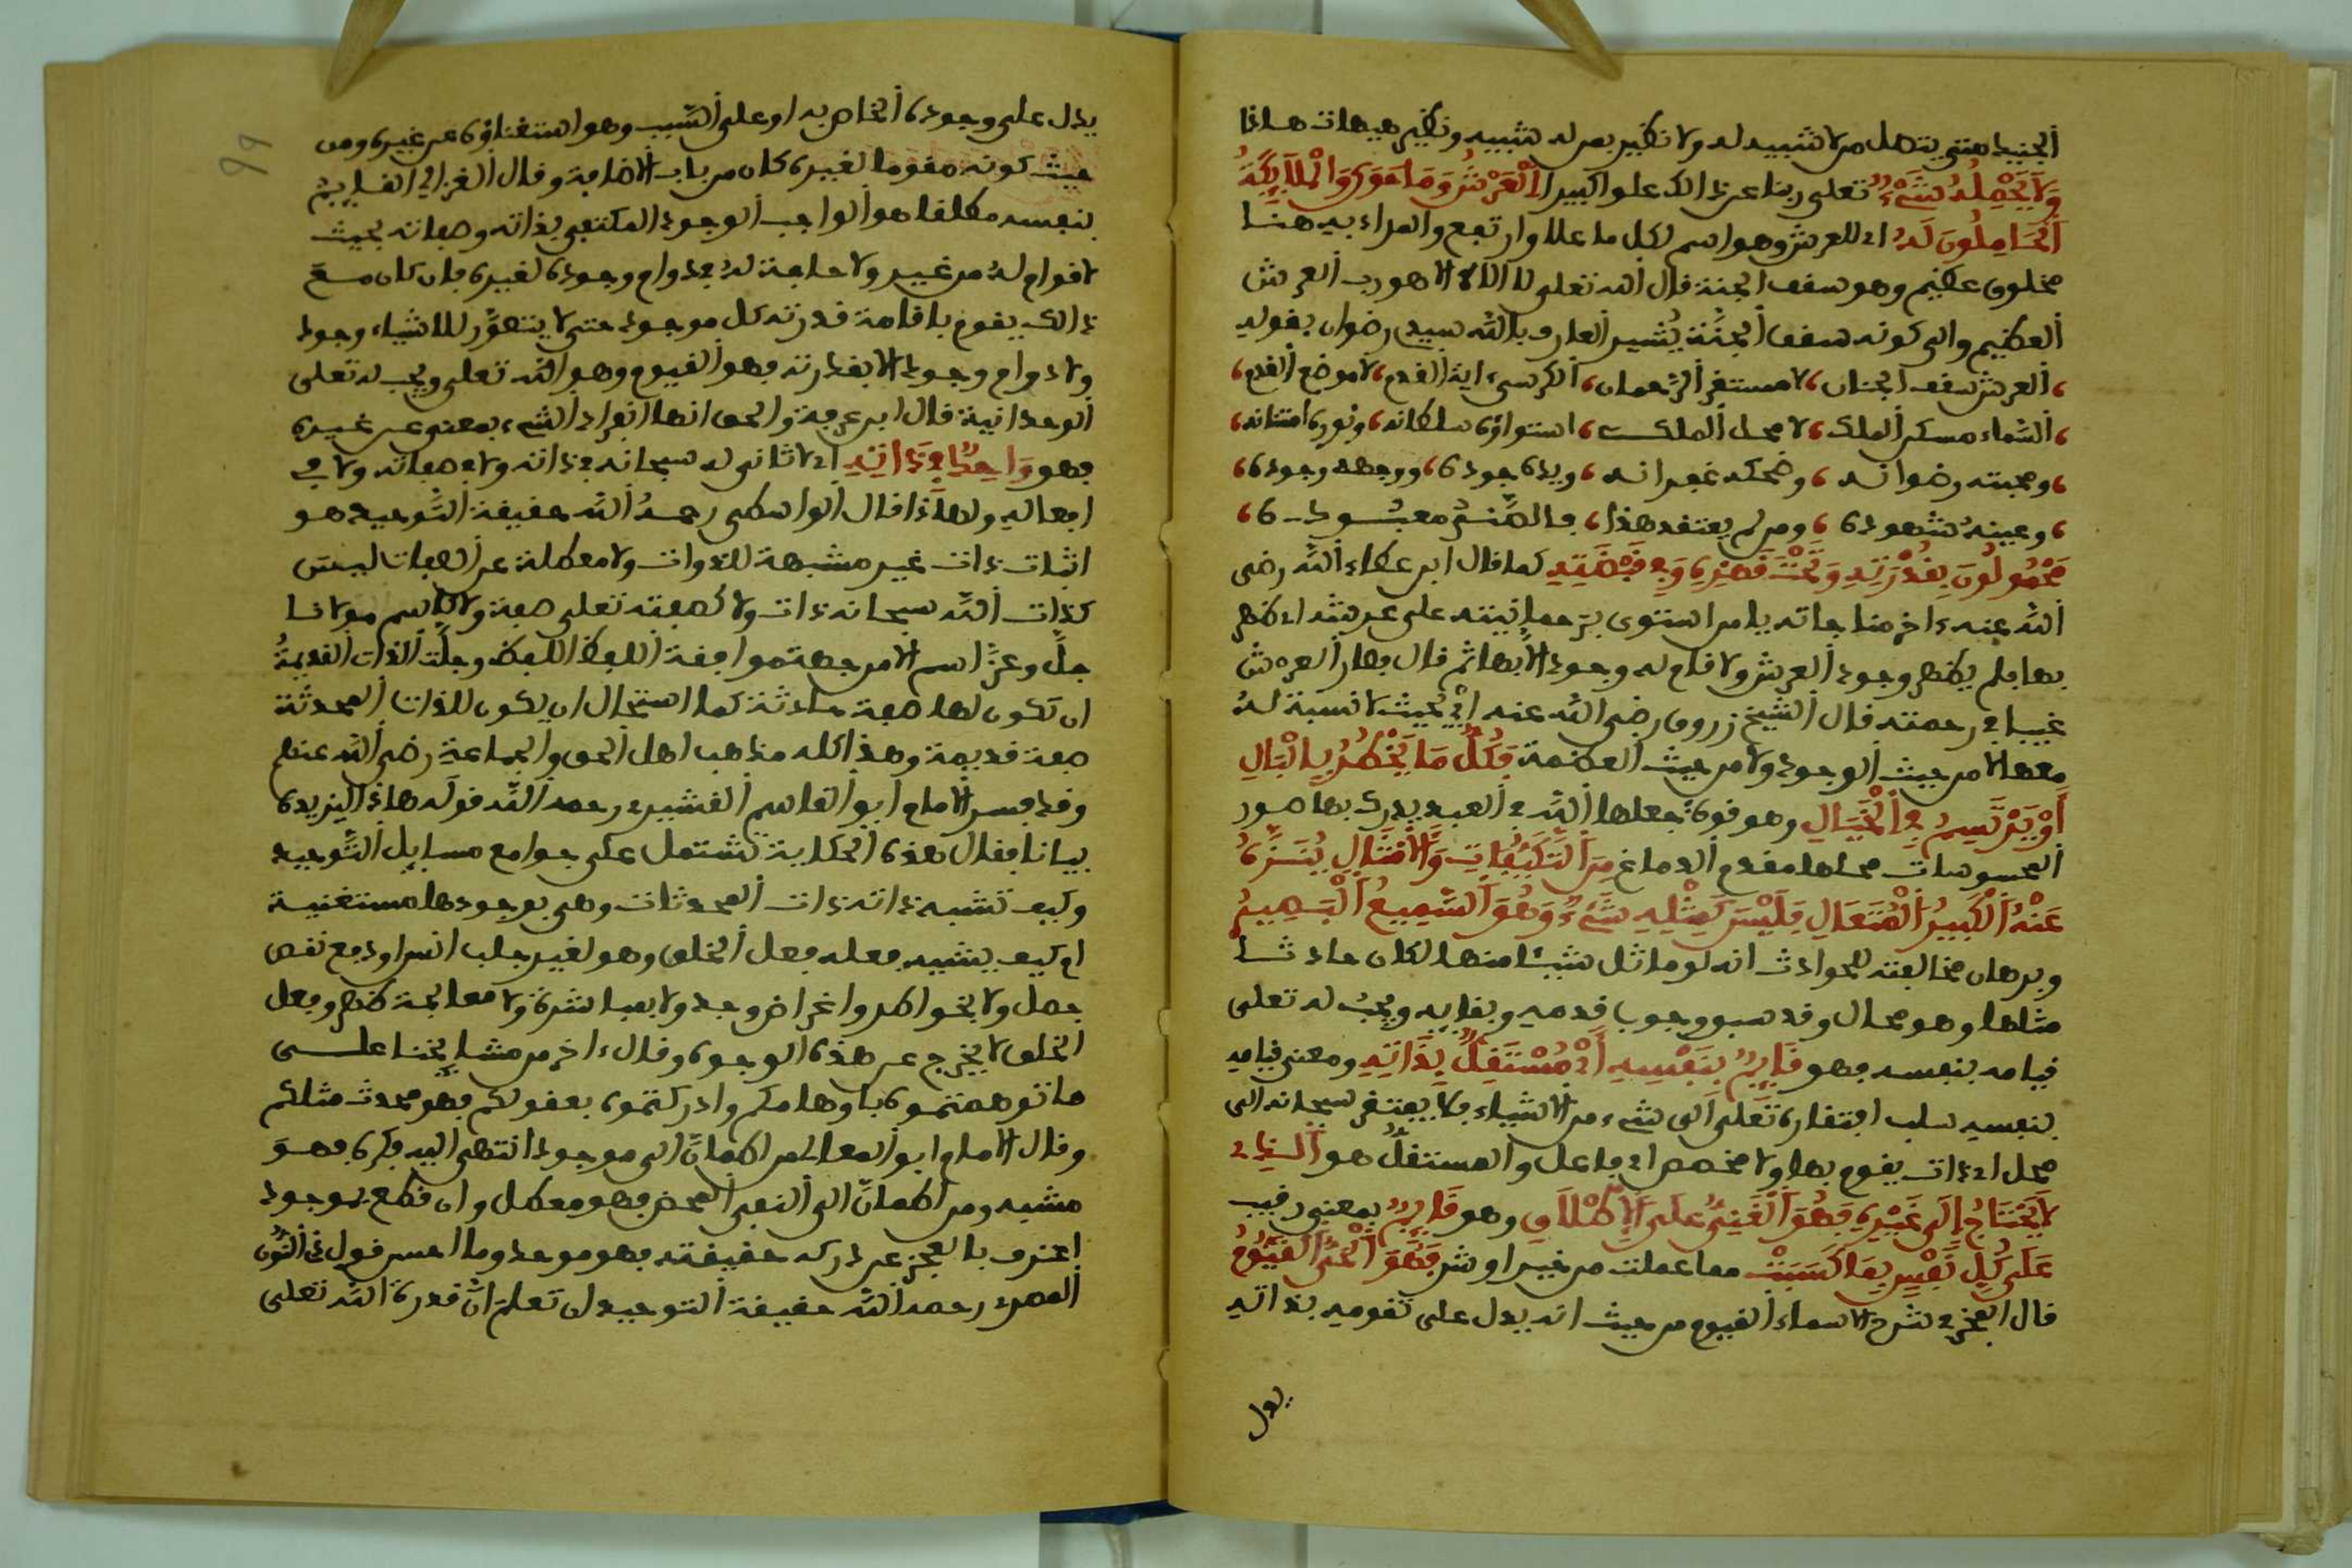 الجنيد متى يتصل من لا شبيه له ولا نظير بمن له شبيه ونظير هيهات هذا
وَلَا يَحْمِلُهُ شَيْءٌ تعلى ربنا عن ذالك علوا كبيرا اَلْعَرْشُ وَمَا حَوَى وَالْمَلَائِكَةُ
اَلْحَامِلُونَ لَهُ اي للعرش وهو اسم لكل ما علا وارتفع والمراد به هنا
مخلوق عظيم وهو سقف الجنة قال الله تعلى لا الاه الا هو رب العرش
العظيم والى كونه سقف الجنّة يُشير العارف بالله سيدي رضوان بقوله
، العرش سقف الجنان، لا مستقر الرّحمان، الكرسيء اية القدم، لا موضع القدم،
، السّماء مسكن الملك، لا محل الملك، استواؤه سلطانه، ونوره امتنانه،
، ومحبته رضوانه، وضحكه غفرانه، ويده جوده، ووجهه وجوده،
، وعينهُ شهوده، ومن لم يعتقد هذا، فالصّنم معبوده،
مَحْمُولُونَ بِقُدْرَتِهِ وَتَحْتَ قَهْرِهِ وَفِي قَبْضَتِهِ كما قال ابن عطاء الله رضي
الله عنه ءاخر مناجاته يا من استوى برحمانيته على عرشه اي ظهر
بها فلم يظهر وجود العرش ولا قام له وجود الّا بها ثم قال فصار العرش
غيبا في رحمته قال الشيخ زروق رضي الله عنه ايْ بحيث لا نسبة لهُ
معها لا من حيث الوجود ولا من حيث العظمة فَكُلُّ مَا يَخْطُرُ بِالْبَالِ
أَوْ يَرْتَسِمُ فِي الْخَيَالِ وهو قوة جعلها الله في العبد يدرك بها صور
المحسوسات محلها مقدم الدماغ مِنَ التَّكَيُّفَاتِ وَالْأَمْثَالِ يُنَزَّهُ
عَنْهُ الْكَبِيرُ الْمُتَعَالِ فَلَيْسَ كَمِثْلِهِ شَيْءٌ وَهُوَ السَّمِيعُ الْبَصِيرُ
وبرهان مخالفته للحوادث انه لو ماثل شيئا منها لكان حادثا
مثلها وهو محال وقد سبق وجوب قدمه وبقايه ويجبُ له تعلى
قيامه بنفسه فهو قَايِمٌ بِنَفْسِهِ أَيْ مُسْتَقِلٌّ بِذَاتِهِ ومعنى قيامه
بنفسه سلب افتقاره تعلى الى شيء من الاشياء فلا يفتقر سبحانه الى
محل اي ذات يقوم بها ولا مخصص اي فاعل والمستقل هو الَّذِي
لَا يَحْتَاجُ إِلَى غَيْرِهِ فَهُوَ الْغَنِيُّ عَلَى الْإِطْلَاقِ وهو قَايِمٌ بمعنى رقيب
عَلَى كُلِّ نَفْسٍ بِمَا كَسَبَتْ مما عملت من خير او شر فَهُوَ الْحَيُّ الْقَيُّومُ
قال الفخر في شرح الاسماء القيوم من حيث انه يدل على تقومه بذاته
يدل
يدل على وجوده الخاص به او على السّبب وهو استغناؤه عن غيره ومن
حيث كونه مقوما لغيره كان من باب الاضافة وقال الغزالي القايم
بنفسه مطلقا هو الواجب الوجود المكتفي بذاته وصفاته بحيث
لا قوام لهُ من غيره ولا حاجة لهُ في دوام وجوده لغيره فان كان مع
ذالك يقوم باقامة قدرته كل موجود حتى لا يتصوّر للاشياء وجود
ولا دوام وجود الا بقدرته فهو القيوم وهو الله تعلى ويجب له تعلى
الوحدانية قال ابن عرفة والحق انها انفراد الشيء بمعنى عن غيره
فهو وَاحِدٌ فِي ذَاتِهِ اي لا ثاني له سبحانه في ذاته ولا في صفاته ولا في
افعاله ولهاذا قال الواسطي رحمهُ الله حقيقة التَّوحيد هو
اثبات ذات غير مشبهة للذوات ولا معطلة عن الصفات ليس
كذات الله سبحانه ذات ولا كصفته تعلى صفة ولا كاسم مولانا
جلّ وعزّ اسم الا من جهة موافقة اللفظ اللفظ وجلّت الذات القديمةُ
ان تكون لها صفة حادثة كما استحال ان يكون للذات المحدثة
صفة قديمة وهذا كله مذهب اهل الحق والجماعة رضي الله عنهم
وقد فسر الامام ابو القاسم القشيري رحمه الله قوله هاذا ليزيده
بيانا فقال هذه الحكاية تشتمل على جوامع مسايل التَّوحيد
وكيف تشبه ذاته ذات المحدثات وهي بوجودها مستغنية
ام كيف يشبه فعله فعل الخلق وهو لغير جلب انس او دفع نقص
حصل ولا بخواطر واغراض وجد ولا بمباشرة ولا معالجة ظهر وفعل
الخلق لا يخرج عن هذه الوجوه وقال ءاخر من مشايخنا على
ما توهمتموه باوهامكم وادركتموه بعقولكم فهو محدث مثلكم
وقال الامام ابو المعالي من اطمأنّ الى موجود انتهى اليه فكره فهو
مشبه ومن اطمأنّ الى النفي المحض فهو معطل وان قطع بموجود
اعترف بالعجز عن درك حقيقته فهو موحد وما احسن قول ذي النُّون
المصري رحمه الله حقيقة التوحيد ان تعلم انّ قدرة الله تعلى